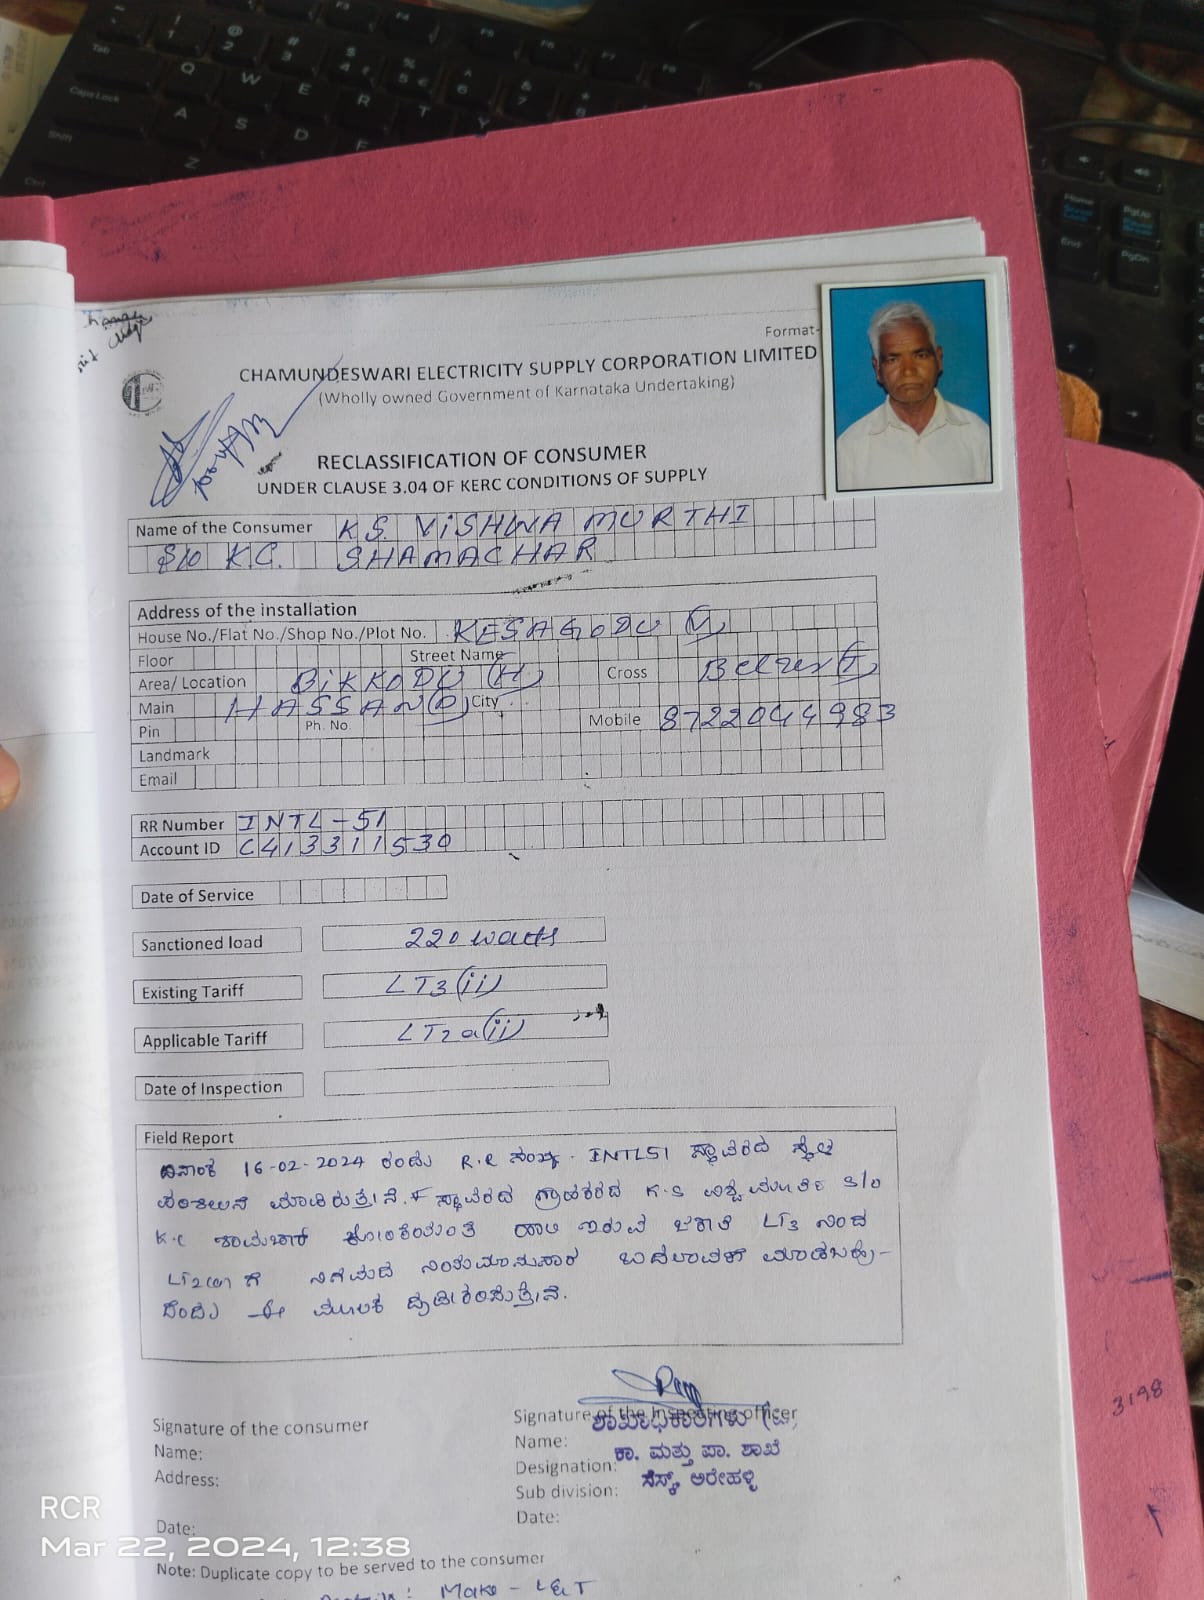 Format-
CHAMUNDESWARI ELECTRICITY SUPPLY CORPORATION LIMITED
(Wholly owned Government of Karnataka Undertaking)
RECLASSIFICATION OF CONSUMER
UNDER CLAUSE 3.04 OF KERC CONDITIONS OF SUPPLY
Name of the Consumer K.S. VISHWA MURTHI
S/O K.C. SHAMACHAR
Address of the installation
House No./Flat No./Shop No./Plot No. KESAGODU (V)
Floor Street Name
Area/ Location BIKKODU (H) Cross Belur (T)
Main HASSAN (D) City
Pin Ph. No. Mobile 8722044983
Landmark
Email
RR Number INTL-51
Account ID C413311530
Date of Service
Sanctioned load 220 watts
Existing Tariff LT3(ii)
Applicable Tariff LT2a(ii)
Date of Inspection
Field Report
ದಿನಾಂಕ 16-02-2024 ರಂದು R.R ಸಂಖ್ಯೆ. INTL51 ಸ್ಥಾವರದ ಸ್ಥಳ
ಪರಿಶೀಲನೆ ಮಾಡಿರುತ್ತೇನೆ. ಸ್ಥಾವರದ ಗ್ರಾಹಕರಾದ K.S ವಿಶ್ವಮೂರ್ತಿ S/O
K.C ಶಾಮಚಾರ್ ಕೋರಿಕೆಯಂತೆ ಹಾಲಿ ಇರುವ ಜಕಾತಿ LT3 ನಿಂದ
LT2(a) ಗೆ ನಿಗಮದ ನಿಯಮಾನುಸಾರ ಬದಲಾವಣೆ ಮಾಡಬಹು-
ದೆಂದು ಈ ಮೂಲಕ ದೃಢೀಕರಿಸುತ್ತೇನೆ.
Signature of the consumer
Name:
Address:
Date:
Signature of the Inspecting officer
ಶಾಖಾಧಿಕಾರಿಗಳು (ವಿ),
Name:
ಕಾ. ಮತ್ತು ಪಾ. ಶಾಖೆ
Designation:
ಸೆಸ್ಕ್, ಅರೇಹಳ್ಳಿ
Sub division:
Date:
Note: Duplicate copy to be served to the consumer
: Make - L&T
3198
RCR
Mar 22, 2024, 12:38